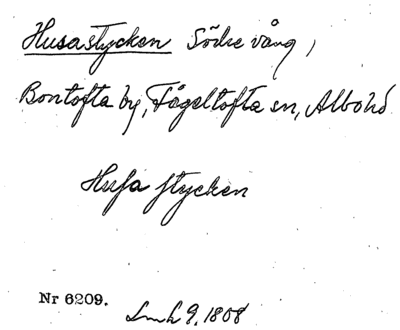 Husastycken Södre vång,
Bontofta by, Fågeltofta sn, Albo hd
Husa stycken
Nr 6209.
Lmh 9. 1808